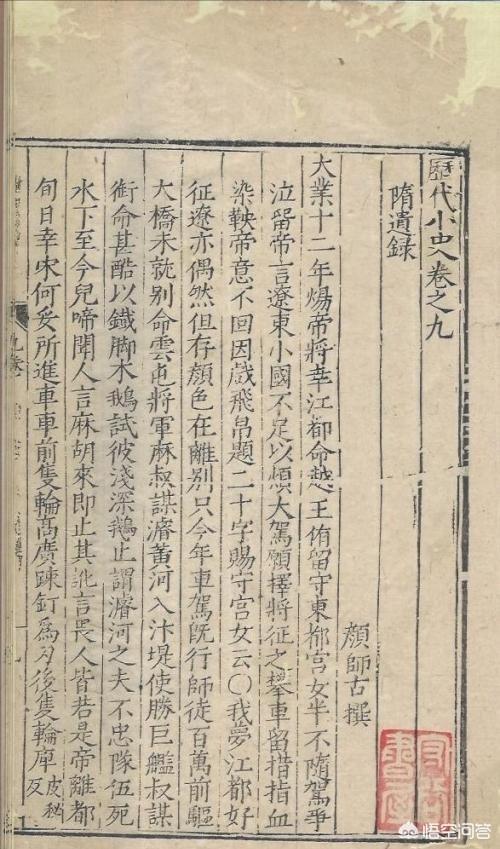 歷代小史卷之九
隋遺録
顏師古撰
大業十二年煬帝將幸江都命越王侑留守東都宮女半不隨駕爭
泣留帝言遼東小國不足以煩大駕願擇將征之攀車留措指血
染鞅帝意不回因戲飛帛題二十字賜守宮女云〇我夢江都好
征遼亦偶然但存顏色在離別只今年車駕既行師徒百萬前驅
大橋未就别命雲屯將軍麻叔謀濬黃河入汴堤使勝巨艦叔謀
銜命甚酷以鐵脚木鵝試彼淺深鵝止謂濬河之夫不忠隊伍死
水下至今兒啼聞人言麻胡來即止其訛言畏人皆若是帝離都
旬日幸宋何妥所進車車前隻輪高廣踈釘爲刃後隻輪庳皮秘反
悟空问答